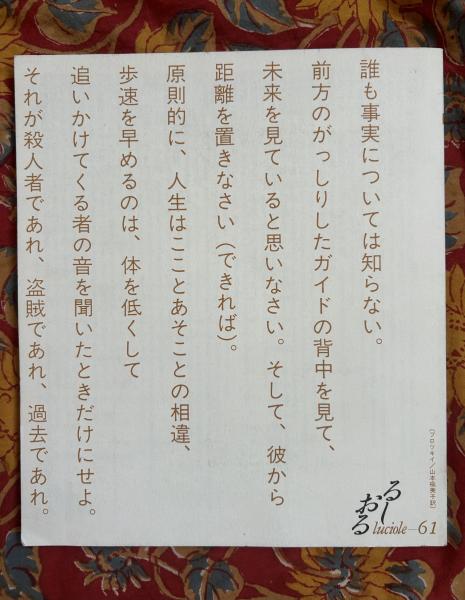 誰も事実については知らない。
前方のがっしりしたガイドの背中を見て、
未来を見ていると思いなさい。そして、彼から
距離を置きなさい（できれば）。
原則的に、人生はこことあそことの相違、
歩速を早めるのは、体を低くして
追いかけてくる者の音を聞いたときだけにせよ。
それが殺人者であれ、盗賊であれ、過去であれ。
（ブロツキイ／山本楡美子訳）
るしおる
luciole—61